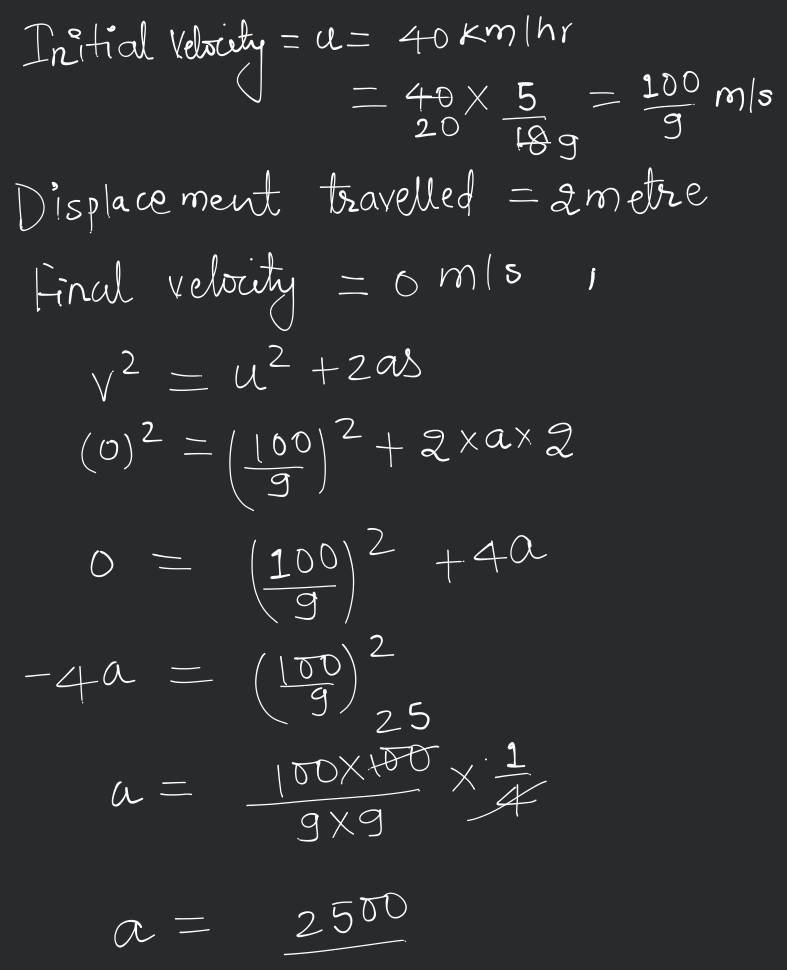 Initial velocity = u = 40 km/hr
= 40 × 5/18 = 100/9 m/s
20 9
Displacement travelled = 2 metre
Final velocity = 0 m/s ,
v² = u² + 2as
(0)² = (100/9)² + 2 × a × 2
0 = (100/9)² + 4a
-4a = (100/9)²
25
a = 100×100/9×9 × 1/4
a = 2500